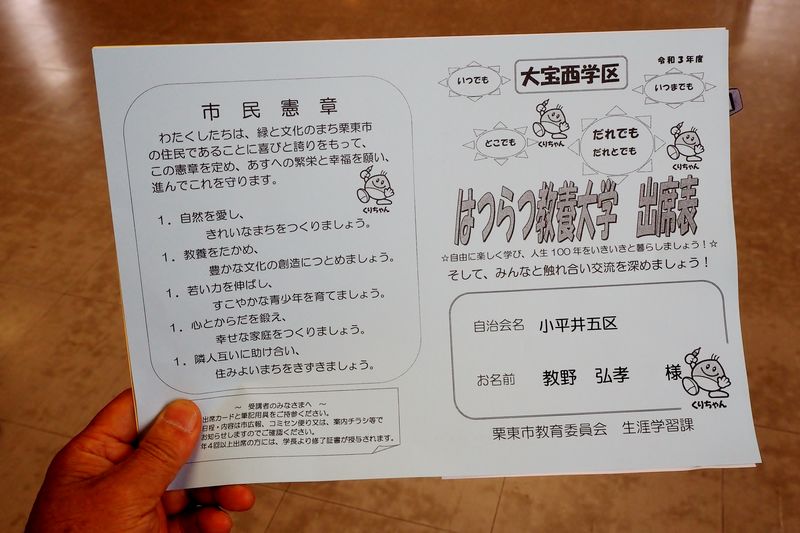 市民憲章
わたくしたちは、緑と文化のまち栗東市
の住民であることに喜びと誇りをもって、
この憲章を定め、あすへの繁栄と幸福を願い、
進んでこれを守ります。
くりちゃん
1．自然を愛し、
きれいなまちをつくりましょう。
1．教養をたかめ、
豊かな文化の創造につとめましょう。
1．若い力を伸ばし、
すこやかな青少年を育てましょう。
1．心とからだを鍛え、
幸せな家庭をつくりましょう。
1．隣人互いに助け合い、
住みよいまちをきずきましょう。
～ 受講者のみなさまへ ～
出席カードと筆記用具をご持参ください。
日程・内容は市広報、コミセン便り又は、案内チラシ等で
お知らせしますのでご確認ください。
年4回以上出席の方には、学長より修了証書が授与されます。
令和3年度
いつでも
大宝西学区
いつまでも
どこでも
くりちゃん
だれでも
だれとでも
くりちゃん
はつらつ教養大学 出席表
☆自由に楽しく学び、人生100年をいきいきと暮らしましょう！☆
そして、みんなと触れ合い交流を深めましょう！
自治会名 小平井五区
お名前 教野 弘孝 様
くりちゃん
栗東市教育委員会 生涯学習課